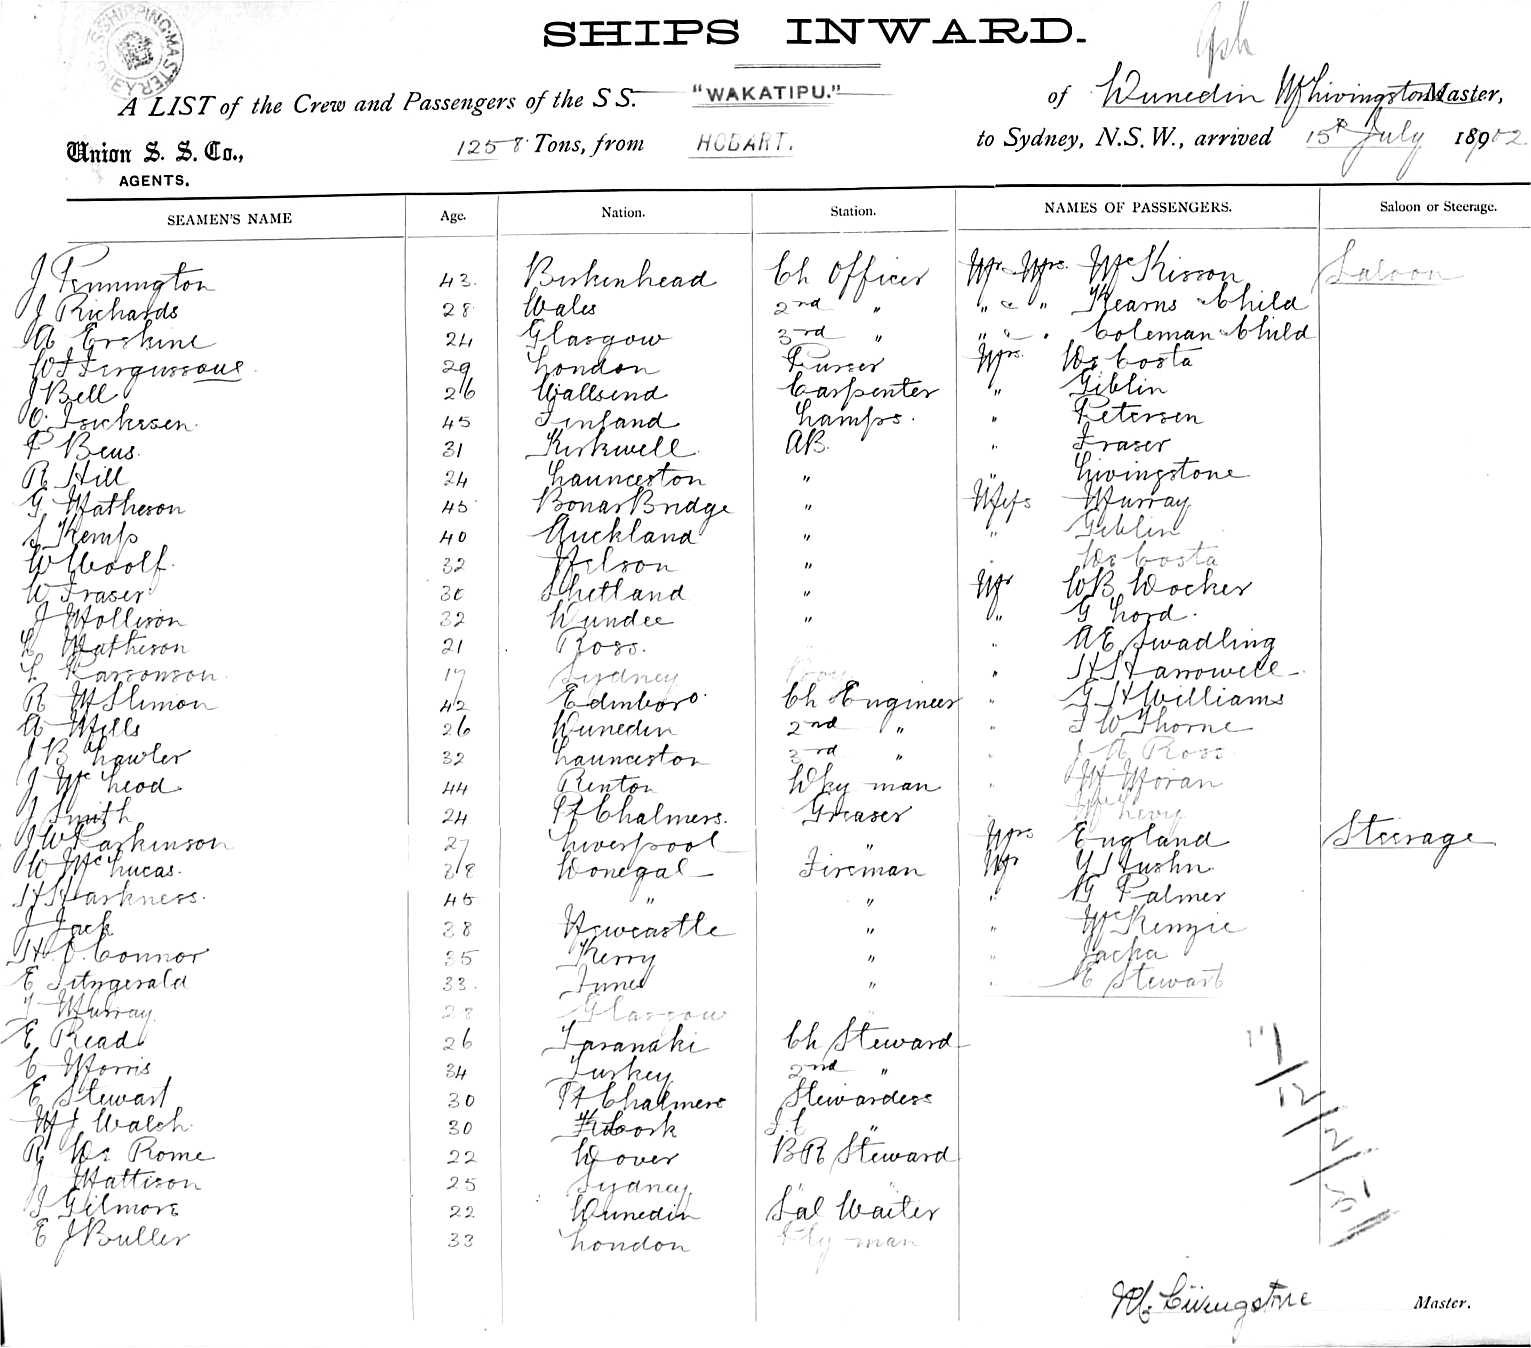 SHIPS INWARD.
A LIST of the Crew and Passengers of the S S. "WAKATIPU." of Dunedin M Livingstone Master,
Union S. S. Co., 1258 Tons, from HOBART. to Sydney, N.S.W., arrived 15th July 1902
AGENTS.
SEAMEN'S NAME Age. Nation. Station. NAMES OF PASSENGERS. Saloon or Steerage.
J Pennington 43 Birkenhead Ch Officer Mr Mrs McKisson Saloon
J Richards 28 Wales 2nd " " & " Kearns & Child
A Erskine 24 Glasgow 3rd " " " " Coleman & Child
W J Fergusson 29 London Purser Mrs Da Costa
J Bell 26 Wallsend Carpenter " Giblin
O. 45 Finland Lamps. " Petersen
P Beus 31 Kirkwell AB. " Fraser
R Hill 24 Launceston " " Livingstone
G Matheson 45 Bonar Bridge " Miss Murray
J Kemp 40 Auckland " " Giblin
W Woolf 32 Nelson " De Costa
W Fraser 30 Shetland " Mr W B Docker
J Mollison 32 Dundee " " G Lord
L Matheson 21 Ross. " A E Swadling
L 19 Sydney Boy " H S Harrowell
R McSlimon 42 Edinboro Ch Engineer " G H Williams
A Mills 26 Dunedin 2nd " " J W Thorne
J B Lawler 32 Launceston 3rd " " J A Ross
J McLeod 44 Renton Dky man " W Moran
J Smith 24 Pt Chalmers. Greaser " Levy
J W Parkinson 27 Liverpool " Mrs England Steerage
W McLucas. 28 Donegal Fireman Mr
H Harkness. 45 " " " G Palmer
J Jack 38 Newcastle " " McKenzie
H O'Connor 35 Kerry " " Jacka
E Fitzgerald 33. " " E Stewart
T Murray 28 Glasgow "
E Read 26 Taranaki Ch Steward
C Morris 34 Turkey 2nd "
E Stewart 30 Pt Chalmers Stewardess
M J Walsh 30 Cork "
R De Rome 22 Dover BR Steward
J Mattison 25 Sydney
J Gilmore 22 Dunedin Sal Waiter
E J Buller 33 London Pty man
M. Livingstone Master.